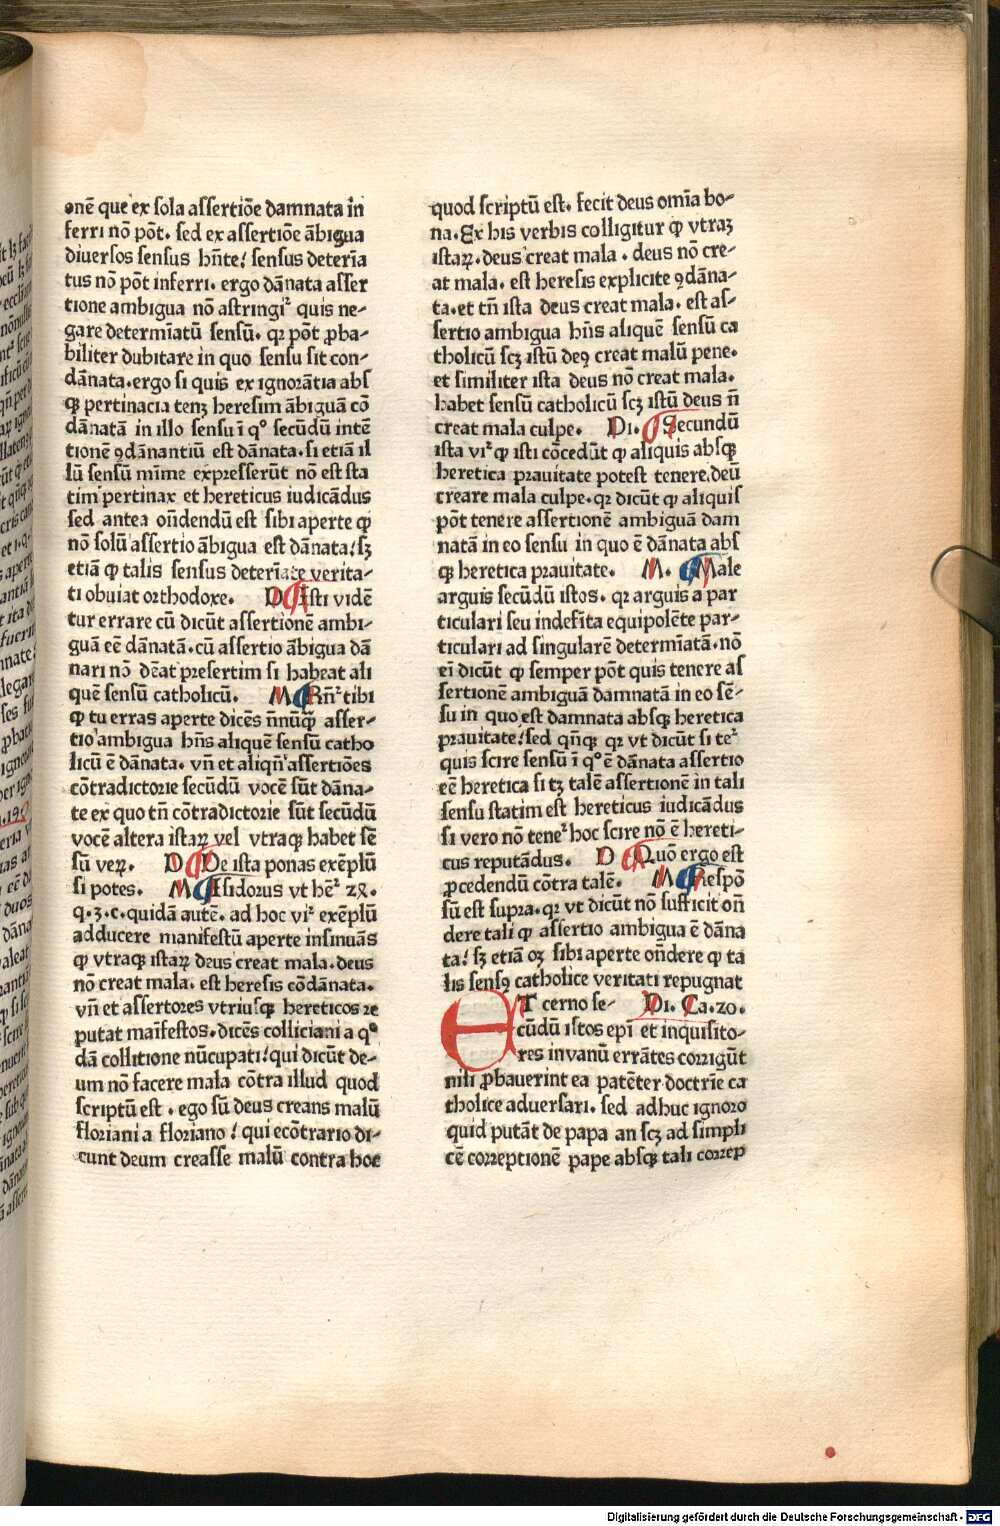 onē que ex sola assertiōe damnata in
ferri nō pōt. sed ex assertiōe ābigua
diuersos sensus hn̄te! sensus deterīa
tus nō pōt inferri. ergo dānata asser
tione ambigua nō astringiᷣ quis ne-
gare determīatū sensū. qꝛ pōt ꝓba-
biliter dubitare in quo sensu sit con-
dānata. ergo si quis ex ignorātia abs
qꝫ pertinacia tenꝫ heresim ābiguā cō
dānatā in illo sensu ī qº secūdū intē
tionē ꝯdānantiū est dānata. si etiā il
lū sensū mīme expresserūt nō est sta
tim pertinax et hereticus iudicādus
sed antea on̄dendū est sibi aperte ꝙ
nō solū assertio ābigua est dānata! sꝫ
etiā ꝙ talis sensus deterīate verita-
ti obuiat orthodoxe. D Isti vidē
tur errare cū dicūt assertionē ambi-
guā eē dānatā. cū assertio ābigua dā
nari nō dēat presertim si habeat ali
quē sensū catholicū. M Rn̄ᷣ tibi
ꝙ tu erras aperte dicēs n̄nūqꝫ asser-
tio ambigua hn̄s aliquē sensū catho
licū ē dānata. vn̄ et aliqn̄ assertiōes
cōtradictorie secūdū vocē sūt dāna-
te ex quo tn̄ cōtradictorie sūt secūdū
vocē altera istaꝝ vel vtraqꝫ habet sē
sū veꝝ. D De ista ponas exēplū
si potes. M Isidorus vt hēᷣ 2ꝝ.
q.3.c. quidā autē. ad hoc viᷣ exēplū
adducere manifestū aperte insinuās
ꝙ vtraqꝫ istaꝝ deus creat mala. deus
nō creat mala. est heresis cōdānata.
vn̄ et assertores vtriusqꝫ hereticos re
putat maīfestos. dicēs colliciani a qº
dā collitione nūcupati! qui dicūt de-
um nō facere mala cōtra illud quod
scriptū est. ego sū deus creans malū
floriani a floriano! qui ecōtrario di-
cunt deum creasse malū contra hoc
quod scriptū est. fecit deus omīa bo-
na. Ex his verbis colligitur ꝙ vtraꝫ
istaꝝ. deus creat mala. deus nō cre-
at mala. est heresis explicite ꝯdāna-
ta. et tn̄ ista deus creat mala. est as-
sertio ambigua hn̄s aliquē sensū ca
tholicū scꝫ istū deꝯ creat malū pene.
et similiter ista deus nō creat mala.
habet sensū catholicū scꝫ istū deus n̄
creat mala culpe. Di. Secundū
ista viᷣ ꝙ isti cōcedūt ꝙ aliquis absqꝫ
heretica prauitate potest tenere. deū
creare mala culpe. qꝛ dicūt ꝙ aliquis
pōt tenere assertionē ambiguā dam
natā in eo sensu in quo ē dānata abs
qꝫ heretica prauitate. M. Male
arguis secūdū istos. qꝛ arguis a par
ticulari seu indefīta equipolēte par-
ticulari ad singularē determīatā. nō
eī dicūt ꝙ semper pōt quis tenere as
sertionē ambiguā damnatā in eo sē-
su in quo est damnata absqꝫ heretica
prauitate! sed qn̄qꝫ qꝛ vt dicūt si teᷣ
quis scire sensū ī qº ē dānata assertio
eē heretica si tꝫ talē assertionē in tali
sensu statim est hereticus iudicādus
si vero nō teneᷣ hoc scire nō ē hereti-
cus reputādus. D Quō ergo est
ꝓcedendū cōtra talē. M Respō
sū est supra. qꝛ vt dicūt nō sufficit on̄
dere tali ꝙ assertio ambigua ē dāna
ta! sꝫ etiā oꝫ sibi aperte on̄dere ꝙ ta
lis sensꝯ catholice veritati repugnat
ET cerno se- Di. Ca. 20.
cūdū istos epī et inquisito-
res in vanū errātes corrigūt
nisi ꝓbauerint ea patēter doctrīe ca
tholice aduersari. sed adhuc ignoro
quid putāt de papa an scꝫ ad simpli
cē correptionē pape absqꝫ tali correp
Digitalisierung gefördert durch die Deutsche Forschungsgemeinschaft - DFG